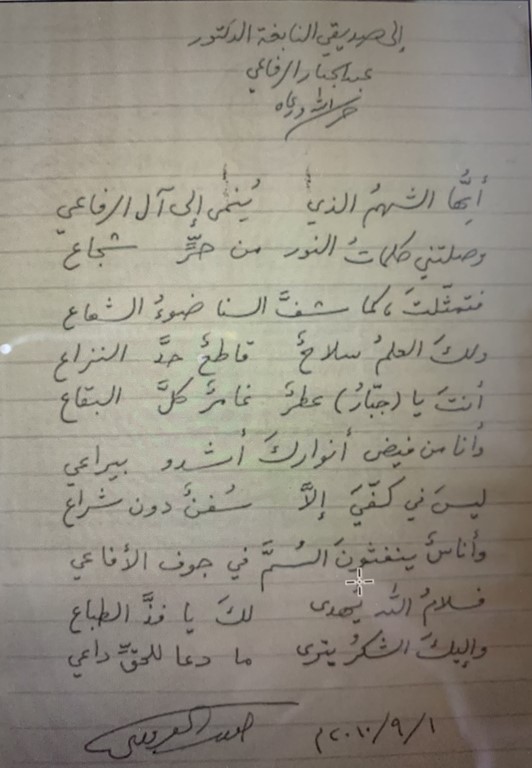 إلى صديقي النابغة الدكتور
عبدالجبار الرفاعي
حرسه الله ورعاه
أيُّها الشهمُ الذي يُنمَى إلى آل الرفاعي
وصلتني كلماتُ النور من حرٍّ شجاع
فتمثّلتَ، كما شفَّ السنا ضوءُ الشعاع
ولكَ العلمُ سلاحٌ قاطعٌ حدَّ النزاع
أنتَ يا (جبّارُ) عطرٌ غامرٌ كلَّ البقاع
وأنا من فيض أنواركَ أشدو بيراعي
ليسَ في كفّيَ إلاَّ سُفنٌ دون شراع
وأناسٌ ينفثونَ السُمَّ في جوف الأفاعي
فسلامُ الله يُهدى لكَ يا فذَّ الطباع
وإليكَ الشكرُ يترى ما دعا للحقّ داعي
٢٠١٠/٩/١م